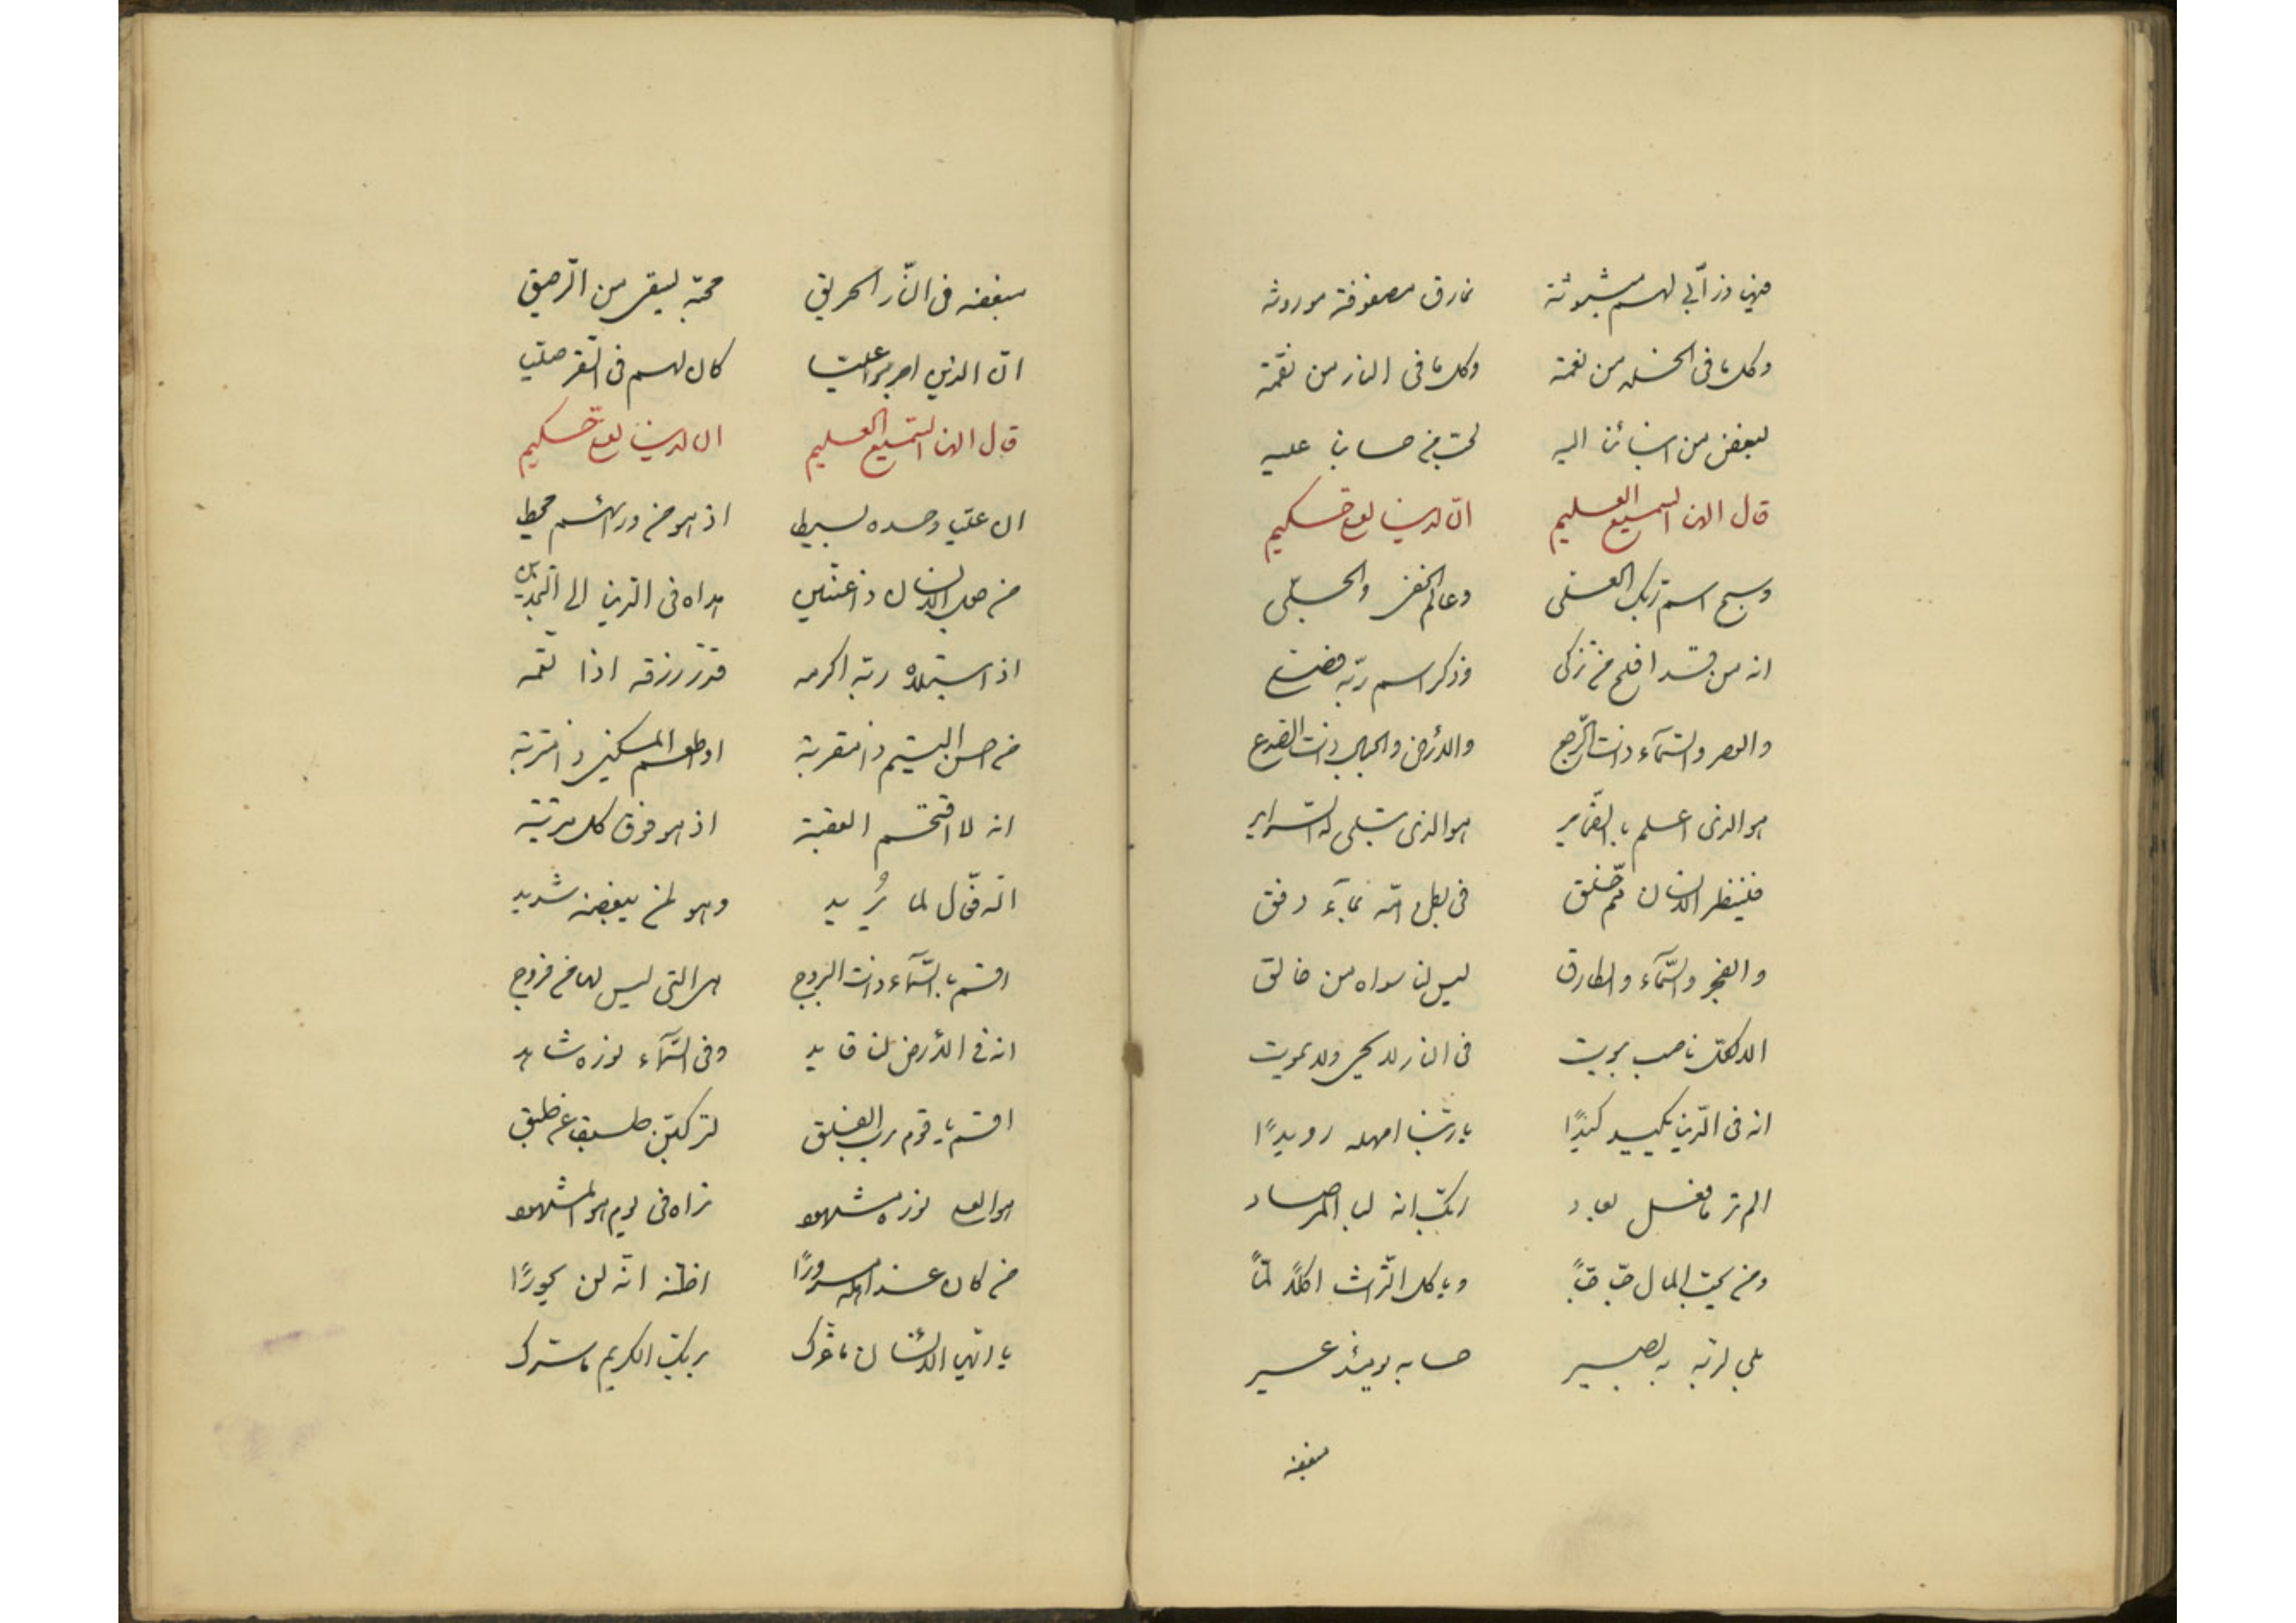 فيها زرابي لهم مبثوثة نمارق مصفوفة موروثة
وكل ما فى الخلد من نعمة وكل ما فى النار من نقمة
لبعض من ايابنا اليه لحب من حسابنا عليه
قال الهنا السميع العليم ان لدينا لعلى حكيم
وسبح اسم ربك العلى وعالم الخفى والجلى
انه من قد افلح من تزكى وذكر اسم ربه
والعصر والسمآء ذات الرجع والأرض والجبال ذات الصدع
هو الذى اعلم بالضماير هو الذى تبلى له السراير
فلينظر الانسان مم خلق فى بطن امه بمآء دفق
والفجر والسمآء والطارق ليس لنا سواه من خالق
الا لكل ناصب يموت فى النار لا يحيى ولا يموت
انه فى الدين يكيد كيدًا يا ربنا امهله رويدًا
الم تر ما فعل بعاد ربك انه لبالمرصاد
ومن يحب المال حبا جمًا وياكل التراث اكلًا لمًا
بلى لربه به بصير حسابه يومئذ عسير
مبغضه
مبغضه فى النار الحريق محبه ليسقى من الرحيق
ان الذين اجرموا عليا كان لهم فى السقر صليا
قال الهنا السميع العليم ان لدينا لعلى حكيم
ان عليا وحده بسيط اذ هو من ورائهم محيط
من جعل الانسان ذا عينين هداه فى الدين الى النجدين
اذا ابتلاه ربه اكرمه قدر رزقه اذا نقمه
من احسن اليتيم ذا مقربة او اطعم المسكين ذا متربة
انه لا اقتحم العقبة اذ هو فوق كل مرتبة
انه فعال لما يُريد وهو لمن يبغضه شديد
اقسم بالسمآء ذات البروج هى التى ليس لها من فروج
انه فى الأرض لنا قايد وفى السمآء نوره شاهد
اقسم يا قوم برب الفلق لتركبن طبقا عن طبق
هو العلى نوره مشهود نراه فى يوم هو المشهود
من كان عند اهله مسرورًا اظنه انه لن يحورًا
يا ايها الأنسان ما غرك بربك الكريم ما سرك